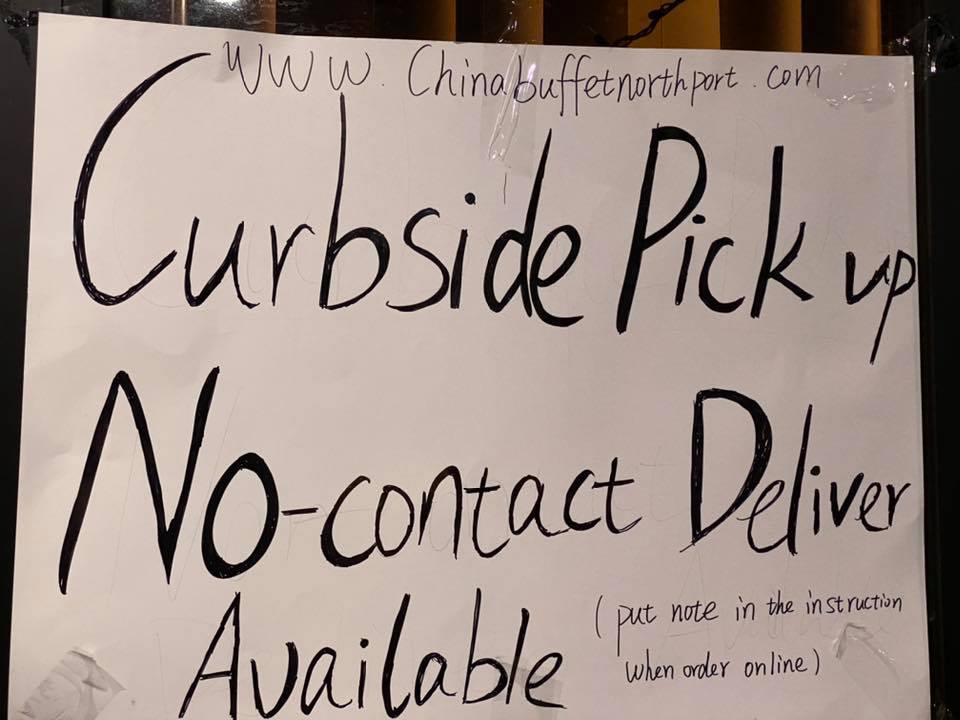 www.Chinabuffetnorthport.com
Curbside Pick up
No-contact Deliver
Available
(put note in the instruction
when order online)